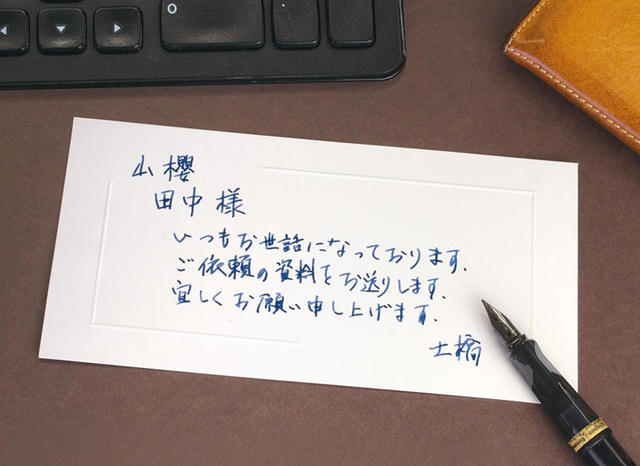 山櫻
田中様
いつもお世話になっております.
ご依頼の資料をお送りします.
宜しくお願い申し上げます.
土橋